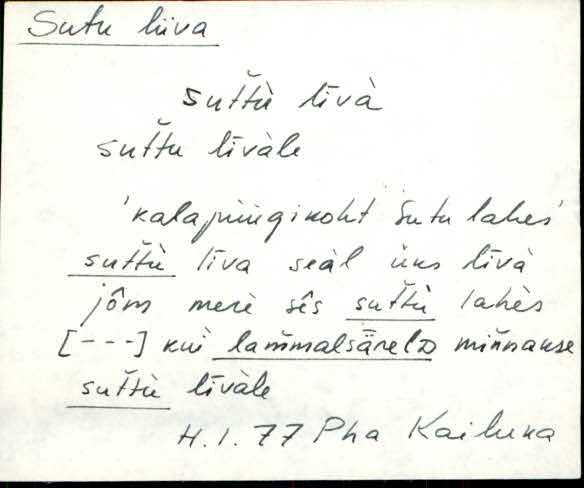 Sutu liiva
sut̆t̆ù līvà
sut̆t̆u līvàle
'kalapüügikoht Sutu lahes'
sut̆t̆ù līva seàl üks līvà
jôm merè sês sut̆t̆ù lahès
[---] kuì lam̆malsäreln miǹnakse
sut̆t̆ù līvàle
H.I.77 Pha Kailuka